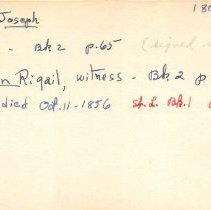 Joseph 180
- Bk 2 p.65 (signed
n Rigail, witness - Bk 2 p
died Oct. 11 - 1856 sh. L. Bk. 1